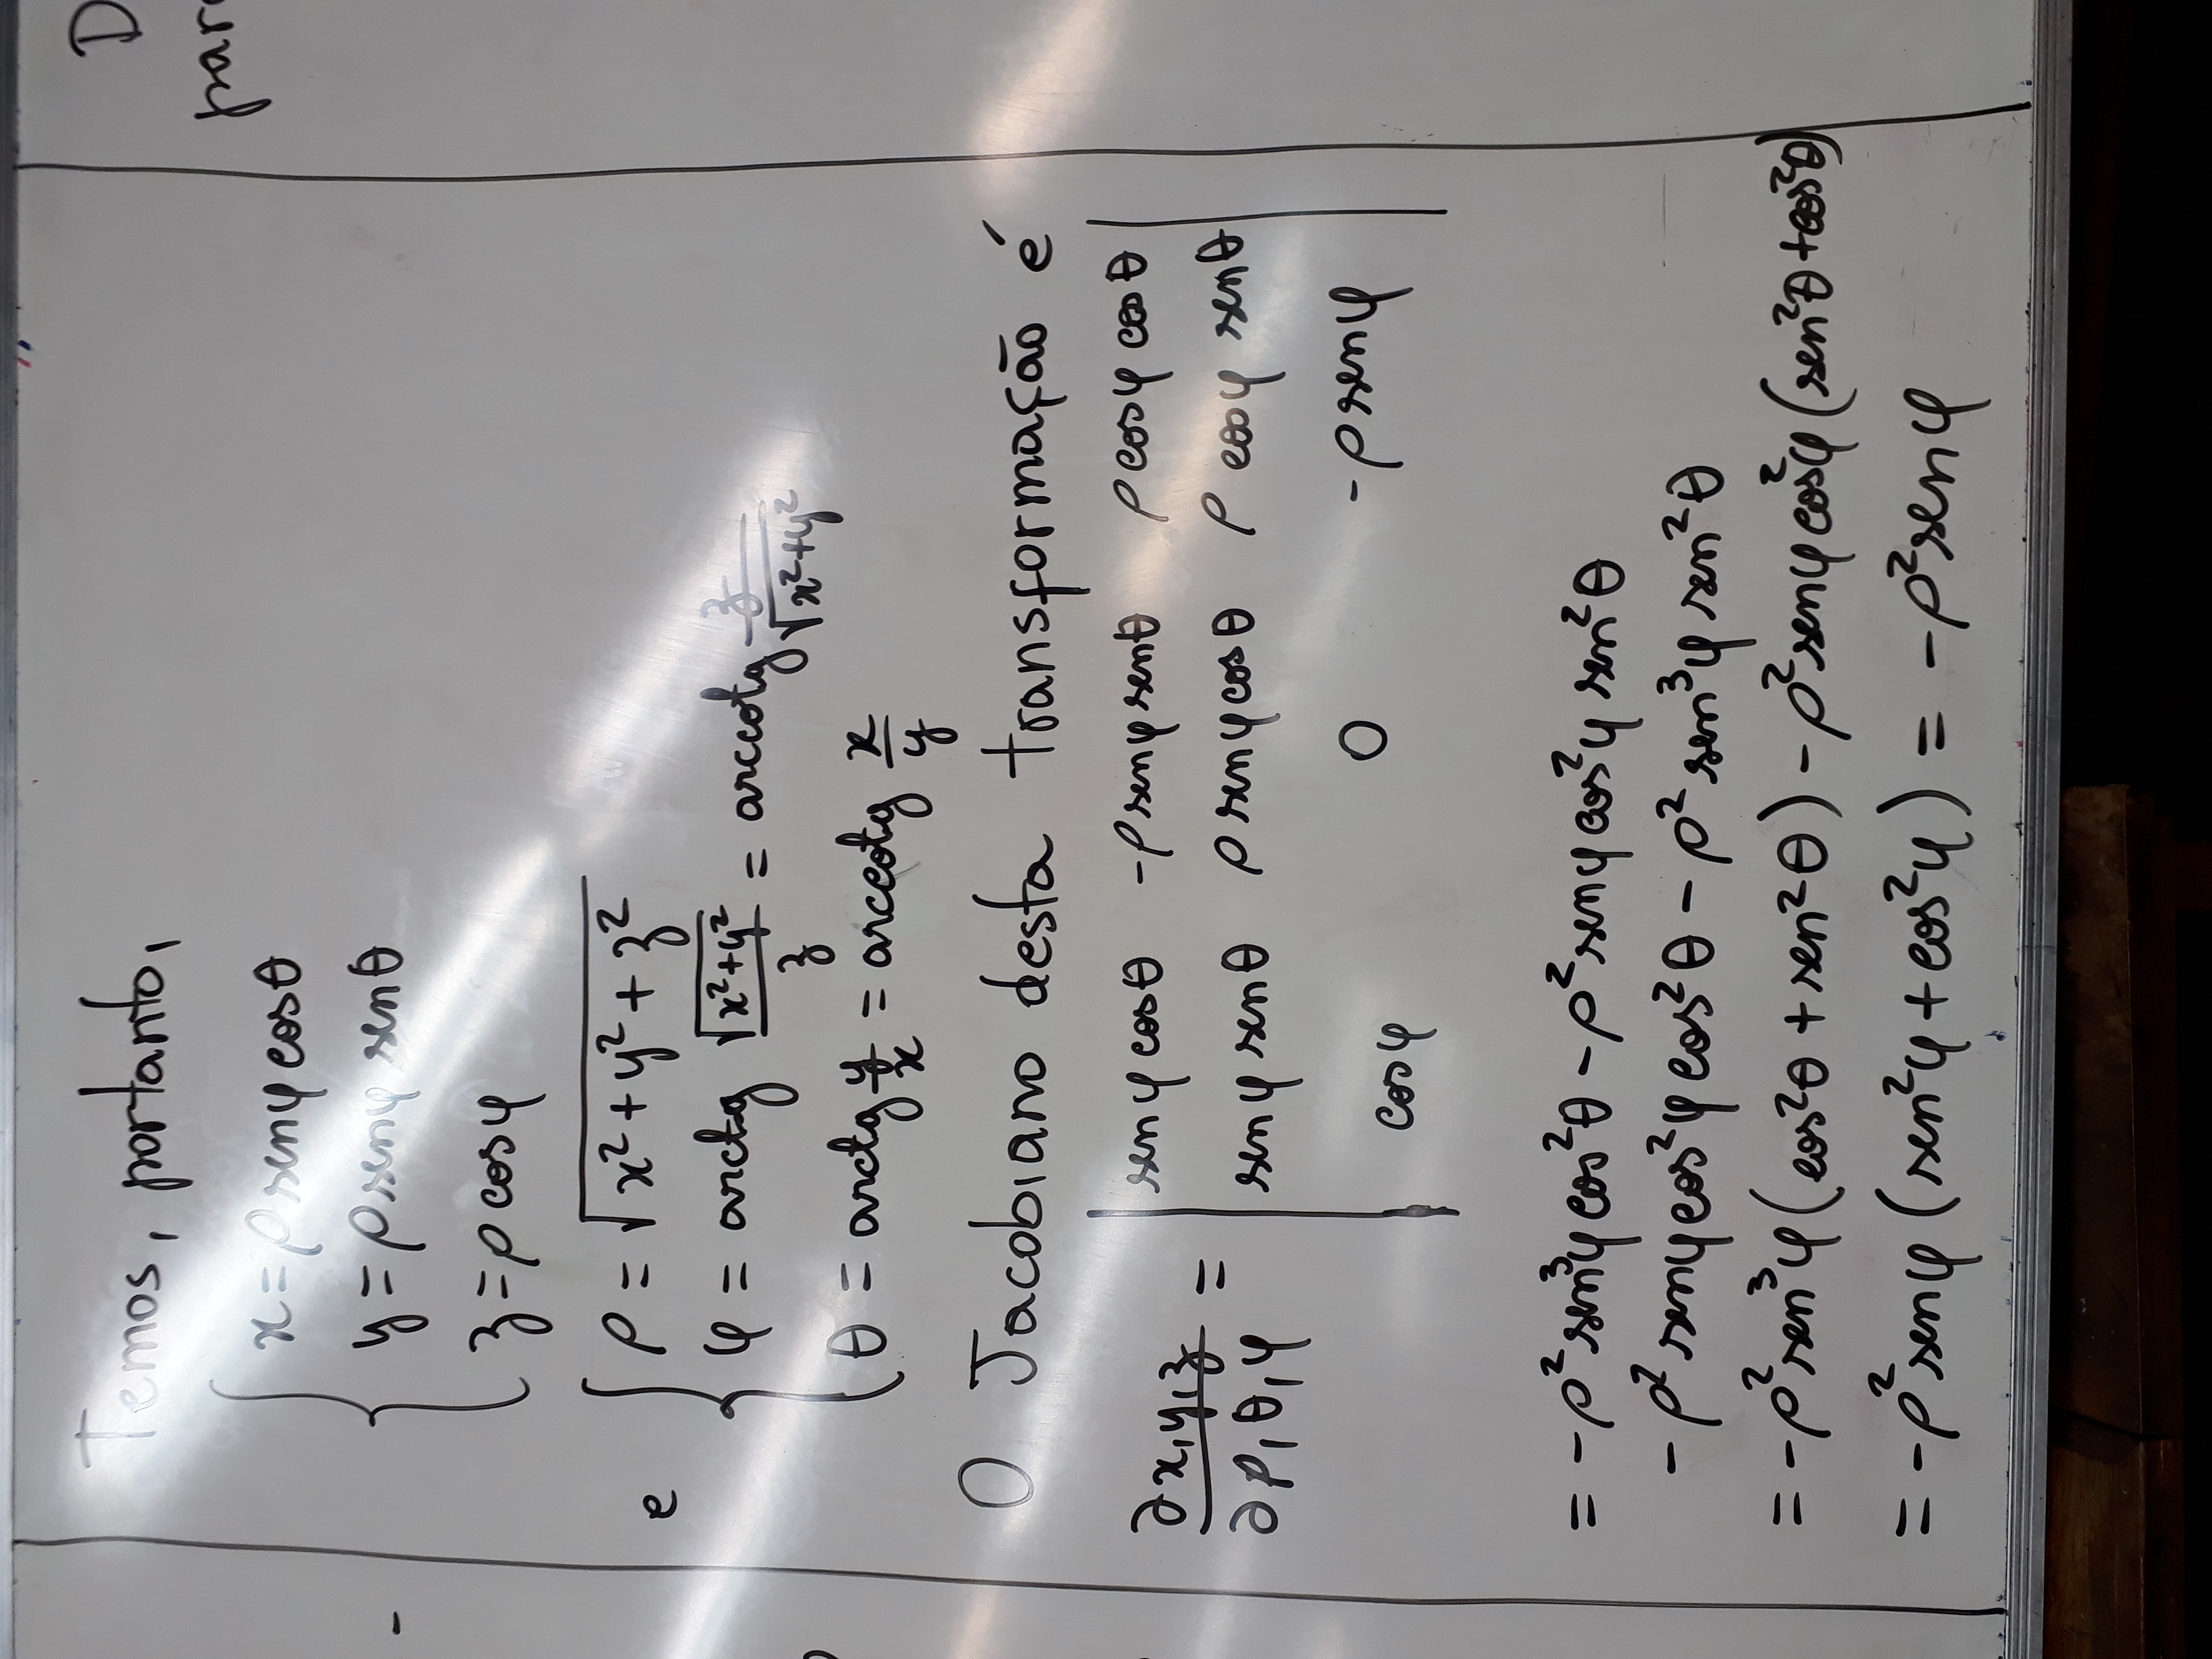 Temos, portanto,
x = ρ sen φ cos θ
y = ρ sen φ sen θ
z = ρ cos φ
e
ρ = √(x² + y² + z²)
φ = arctg √(x²+y²)/z = arccotg z/√(x²+y²)
θ = arctg y/x = arccotg x/y
O Jacobiano desta transformação é
∂x,y,z/∂ρ,θ,φ =
| sen φ cos θ   -ρ sen φ sen θ   ρ cos φ cos θ |
| sen φ sen θ   ρ sen φ cos θ   ρ cos φ sen θ |
| cos φ   0   -ρ sen φ |
= -ρ² sen³φ cos²θ - ρ² sen φ cos²φ sen²θ
-ρ² sen φ cos²φ cos²θ - ρ² sen³φ sen²θ
= -ρ² sen³φ (cos²θ + sen²θ) - ρ² sen φ cos²φ (sen²θ + cos²θ)
= -ρ² sen φ (sen²φ + cos²φ) = -ρ² sen φ
D
par